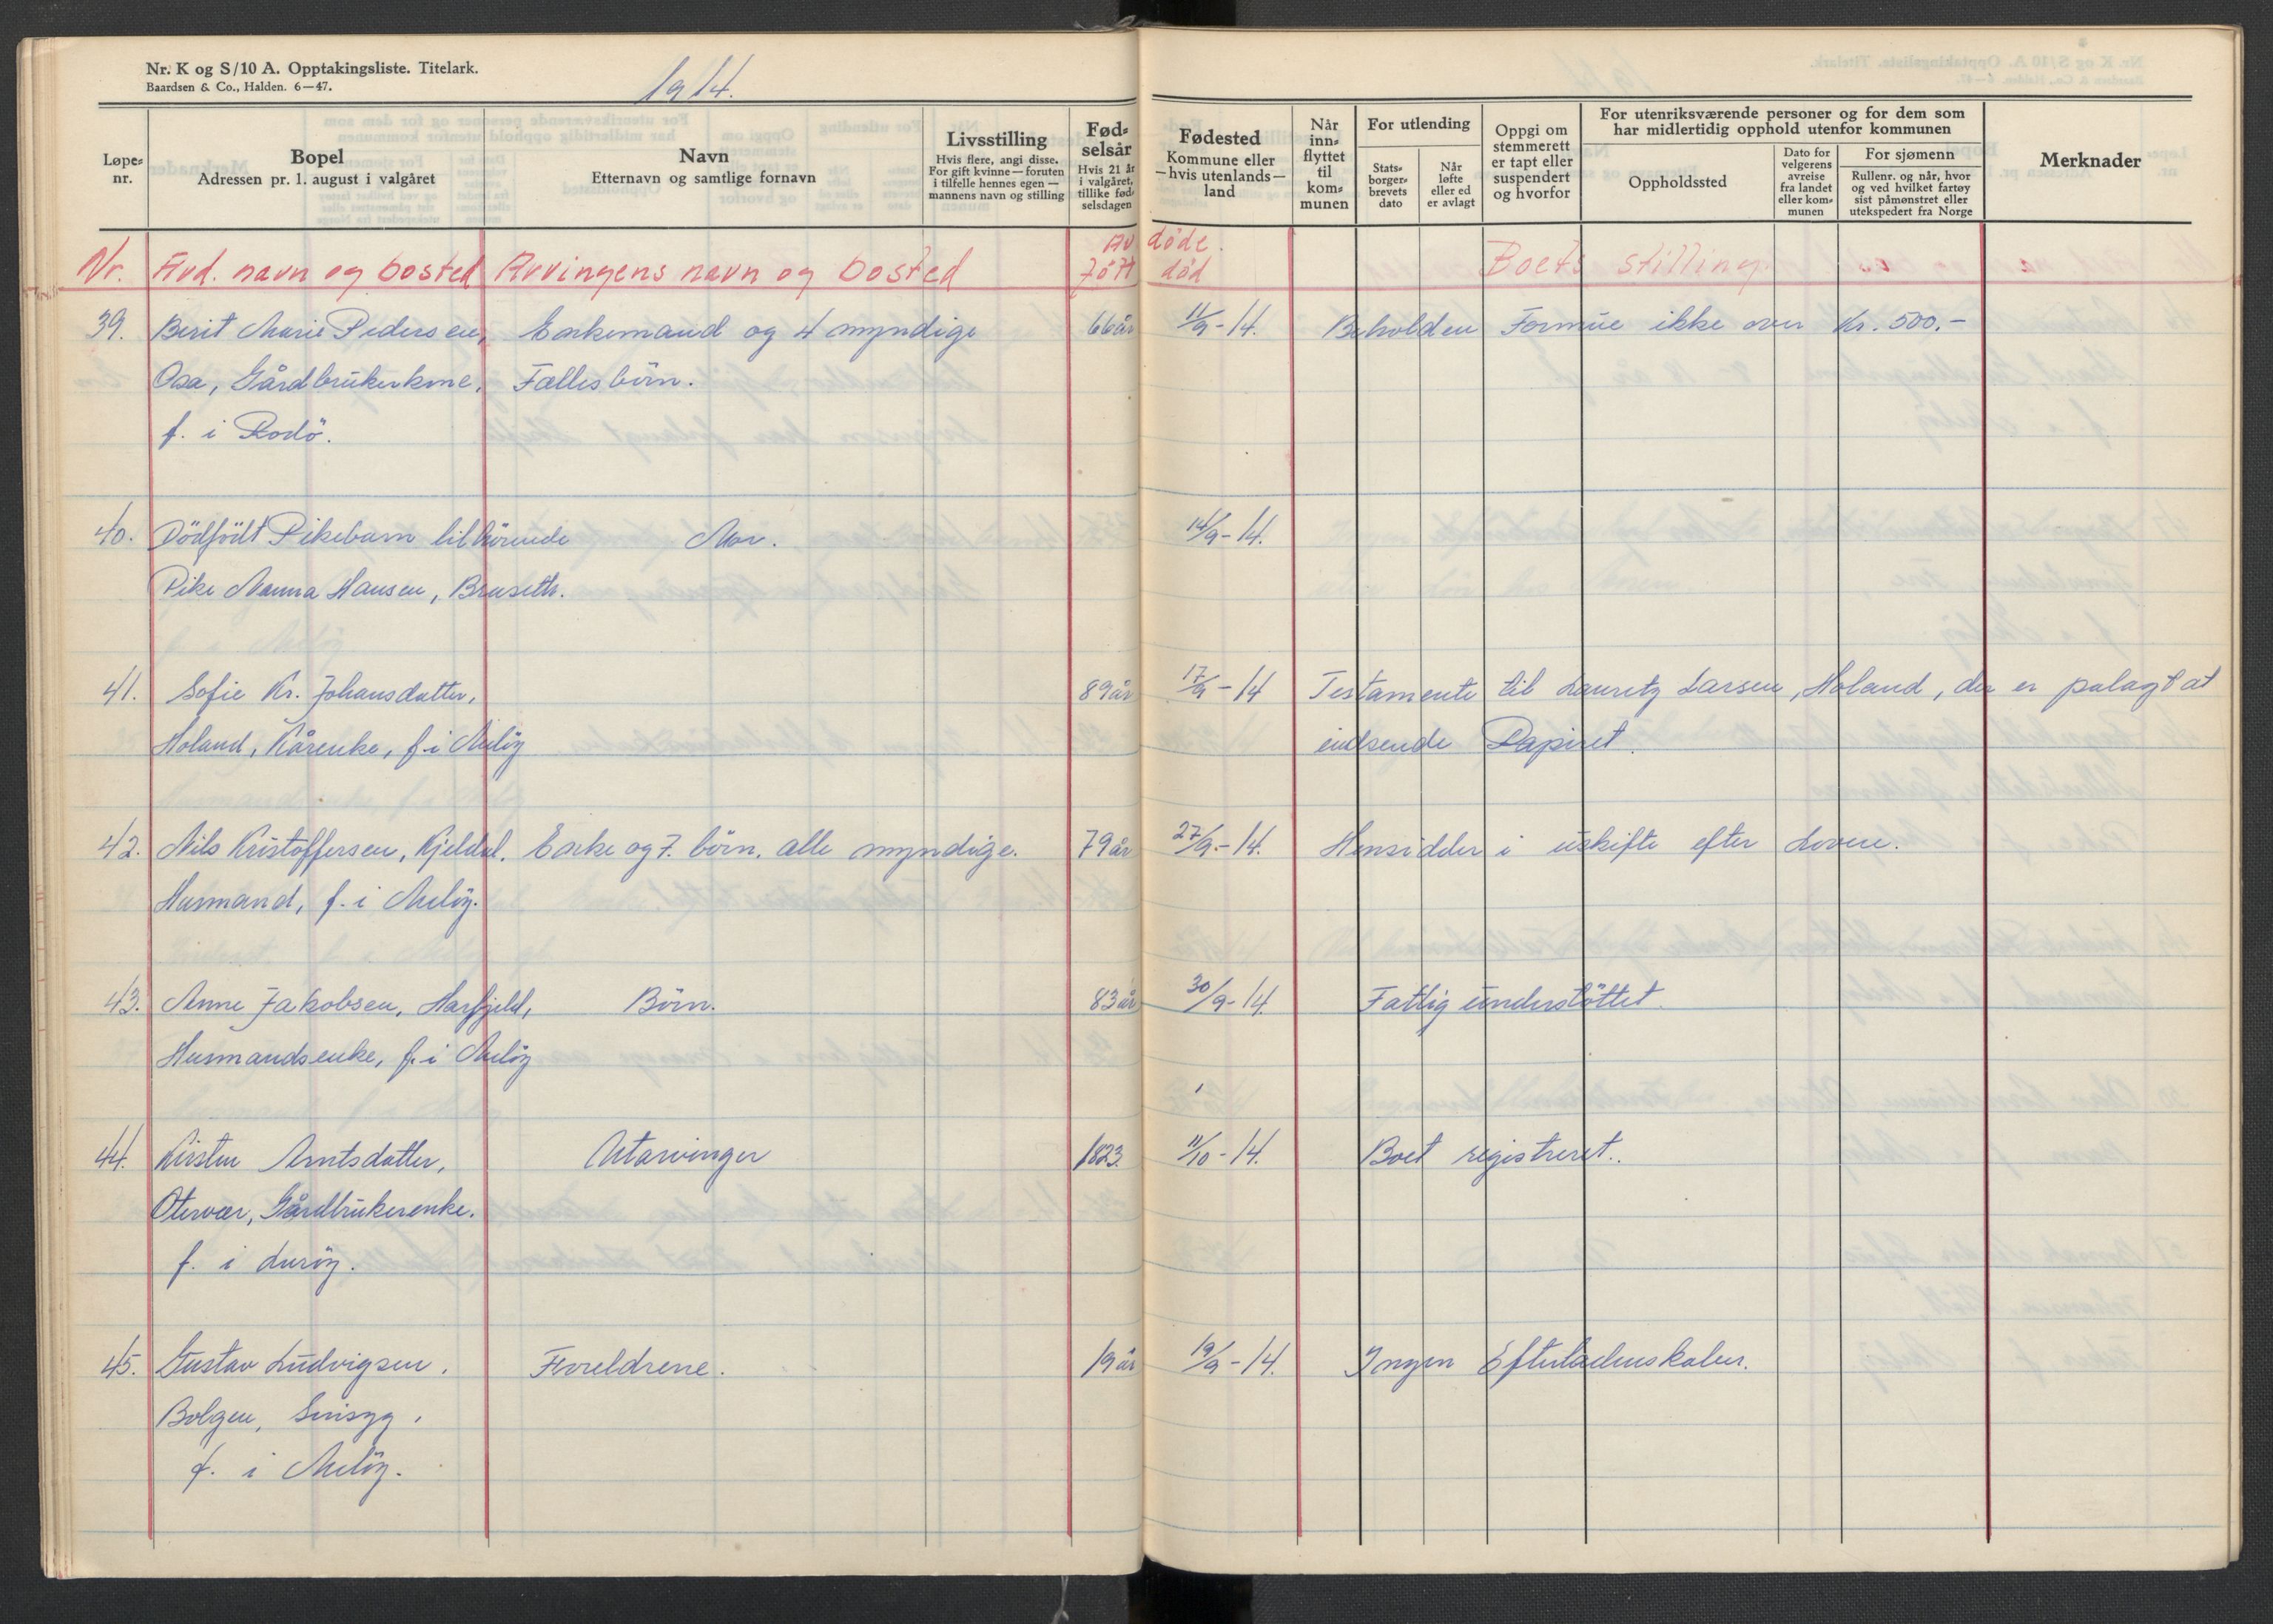 Nr. K og S/10 A. Opptakingsliste. Titelark.
Baardsen & Co., Halden. 6—47.
1914.
Løpe-nr.
Bopel
Adressen pr. 1. august i valgåret
Navn
Etternavn og samtlige fornavn
Livsstilling
Hvis flere, angi disse.
For gift kvinne — foruten
i tilfelle hennes egen —
mannens navn og stilling
Fød-
selsår
Hvis 21 år
i valgåret,
tillike fød-
selsdagen
Fødested
Kommune eller
— hvis utenlands —
land
Når
inn-
flyttet
til
kom-
munen
For utlending
Stats-
borger-
brevets
dato
Når
løfte
eller ed
er avlagt
Oppgi om
stemmerett
er tapt eller
suspendert
og hvorfor
For utenriksværende personer og for dem som
har midlertidig opphold utenfor kommunen
Oppholdssted
Dato for
velgerens
avreise
fra landet
eller kom-
munen
For sjømenn
Rullenr. og når, hvor
og ved hvilket fartøy
sist påmønstret eller
utekspedert fra Norge
Merknader
Av døde.
Nr. Avd. navn og bosted Arvingens navn og bosted født død Boets stilling
39. Berit Marie Pedersen, Enkemand og 4 myndige 66 år 11/9-14. Beholden Formue ikke over Kr. 500,-
Osa, Gårdbrukerkone, Fællesbörn.
f. i Rodö.
40. Dödfödt Pikebarn tilhörende Mor. 14/9-14.
Pike Nanna Hansen, Bruseth.
41. Sofie Kr. Johansdatter, 89 år 17/9-14 Testamente til Lauritz Larsen, Holand, der er palagt at
Holand, Kårenke, f. i Melöy indsende Papiret.
42. Nils Kristoffersen, Kjeldal. Enke og 7. börn. alle myndige. 79 år 27/9.-14. Hensidder i uskifte efter Loven.
Husmand, f. i Melöy.
43. Anne Jakobsen, Harfjeld, Börn. 83 år 30/9-14. Fattig understöttet.
Husmandsenke, f. i Melöy
44. Kirsten Arntsdatter, Utarvinger 1823. 11/10-14. Boet registreret.
Otervær, Gårdbrukerenke.
f. i Luröy.
45. Gustav Ludvigsen. Foreldrene. 19 år 19/9-14. Ingen Efterladenskaber.
Bolgen, Sinsyg,
f. i Melöy.